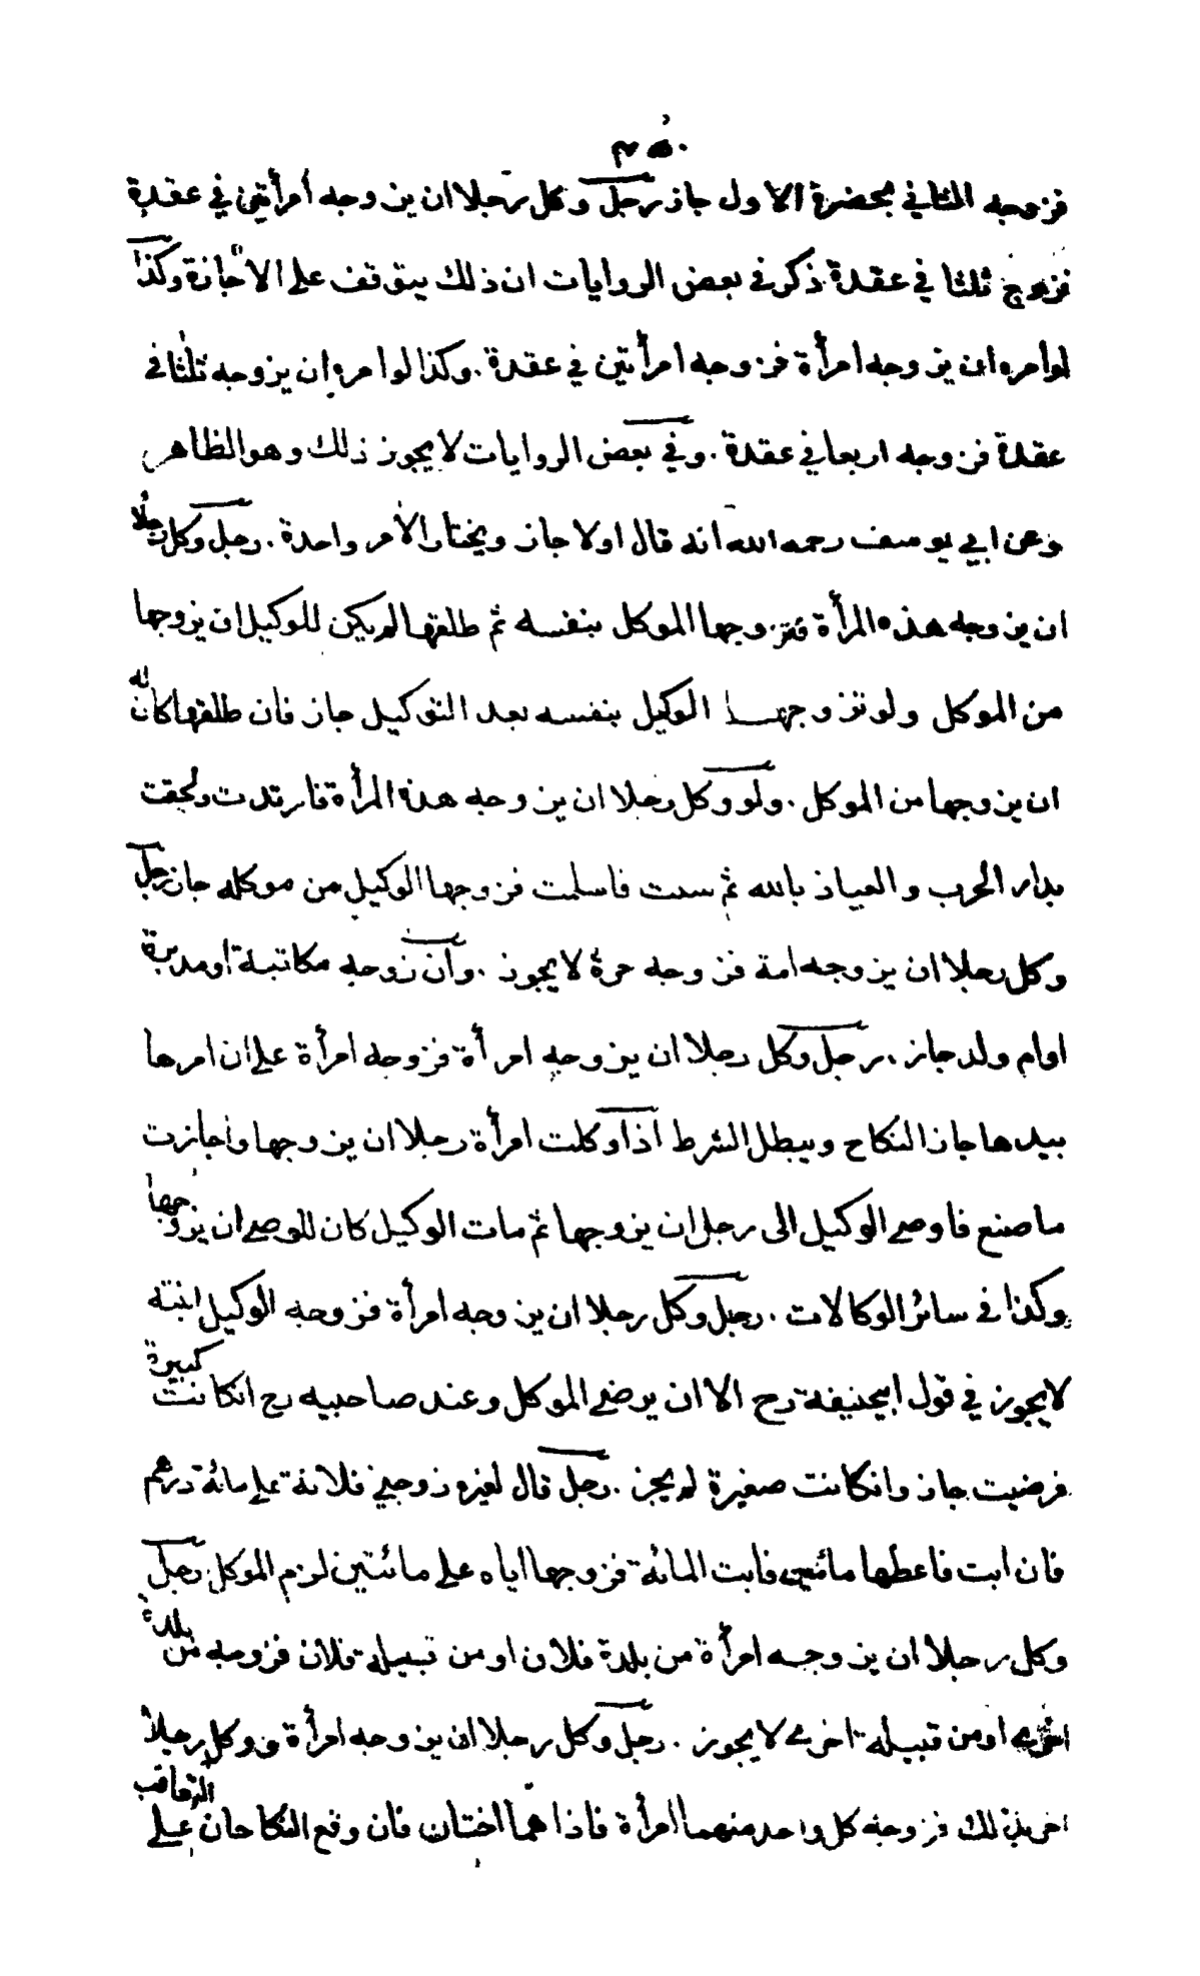 فزوجه الثاني بحضرة الاول جاز رجل وكل رجلا ان يزوجه امرأتين في عقدة
فزوج ثلثا في عقدة ذكر في بعض الروايات ان ذلك يتوقف على الاجازة وكذا
لو امره ان يزوجه امرأة فزوجه امرأتين في عقدة . وكذا لو امره ان يزوجه ثلثا في
عقدة فزوجه اربعا في عقدة . وفي بعض الروايات لا يجوز ذلك وهو الظاهر
وعن ابي يوسف رحمه الله انه قال اولا جاز ويختار الآمر واحدة . رجل وكل رجلا
ان يزوجه هذه المرأة فتزوجها الموكل بنفسه ثم طلقها لم يكن للوكيل ان يزوجها
من الموكل ولو تزوجها الوكيل بنفسه بعد التوكيل جاز فان طلقها كان له
ان يزوجها من الموكل . ولو وكل رجلا ان يزوجه هذه المرأة فارتدت ولحقت
بدار الحرب والعياذ بالله ثم سبت فاسلمت فزوجها الوكيل من موكله جاز رجل
وكل رجلا ان يزوجه امة فزوجه حرة لا يجوز . وان زوجه مكاتبة او مدبرة
او ام ولد جاز . رجل وكل رجلا ان يزوجه امرأة فزوجه امرأة على ان امرها
بيدها جاز النكاح ويبطل الشرط اذا وكلت امرأة رجلا ان يزوجها واجازت
ما صنع فاوصى الوكيل الى رجل ان يزوجها ثم مات الوكيل كان للوصي ان يزوجها
وكذا في سائر الوكالات . رجل وكل رجلا ان يزوجه امرأة فزوجه الوكيل ابنته
لا يجوز في قول ابيحنيفة رح الا ان يرضى الموكل وعند صاحبيه رح انكانت كبيرة
فرضيت جاز وانكانت صغيرة لم يجز . رجل قال لغيره زوجني فلانة على مائة درهم
فان ابت فاعطها مائتين فابت المائة فزوجها اياه على مائتين لزم الموكل رجل
وكل رجلا ان يزوجه امرأة من بلدة فلان او من قبيلة فلان فزوجه من بلدة
اخرى او من قبيلة اخرى لا يجوز . رجل وكل رجلا ان يزوجه امرأة ووكل رجلا
اخر بذلك فزوجه كل واحد منهما امرأة فاذا هما اختان فان وقع النكاحان على التعاقب